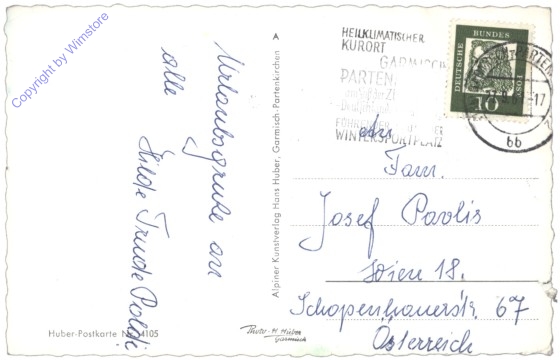 Copyright by Wimstore
Urlaubsgrüße an
alle
Hilde Trude Poldi
Huber-Postkarte Nr. 4105
A
Alpiner Kunstverlag Hans Huber, Garmisch-Partenkirchen
Photo-H. Huber
Garmisch
HEILKLIMATISCHER
KURORT
GARMISCH
PARTEN
WINTERSPORTPLATZ
DEUTSCHE BUNDESPOST
10
-17
bb
An
Fam.
Josef Pavlis
Wien 18.
Schopenhauerstr 67
Österreich